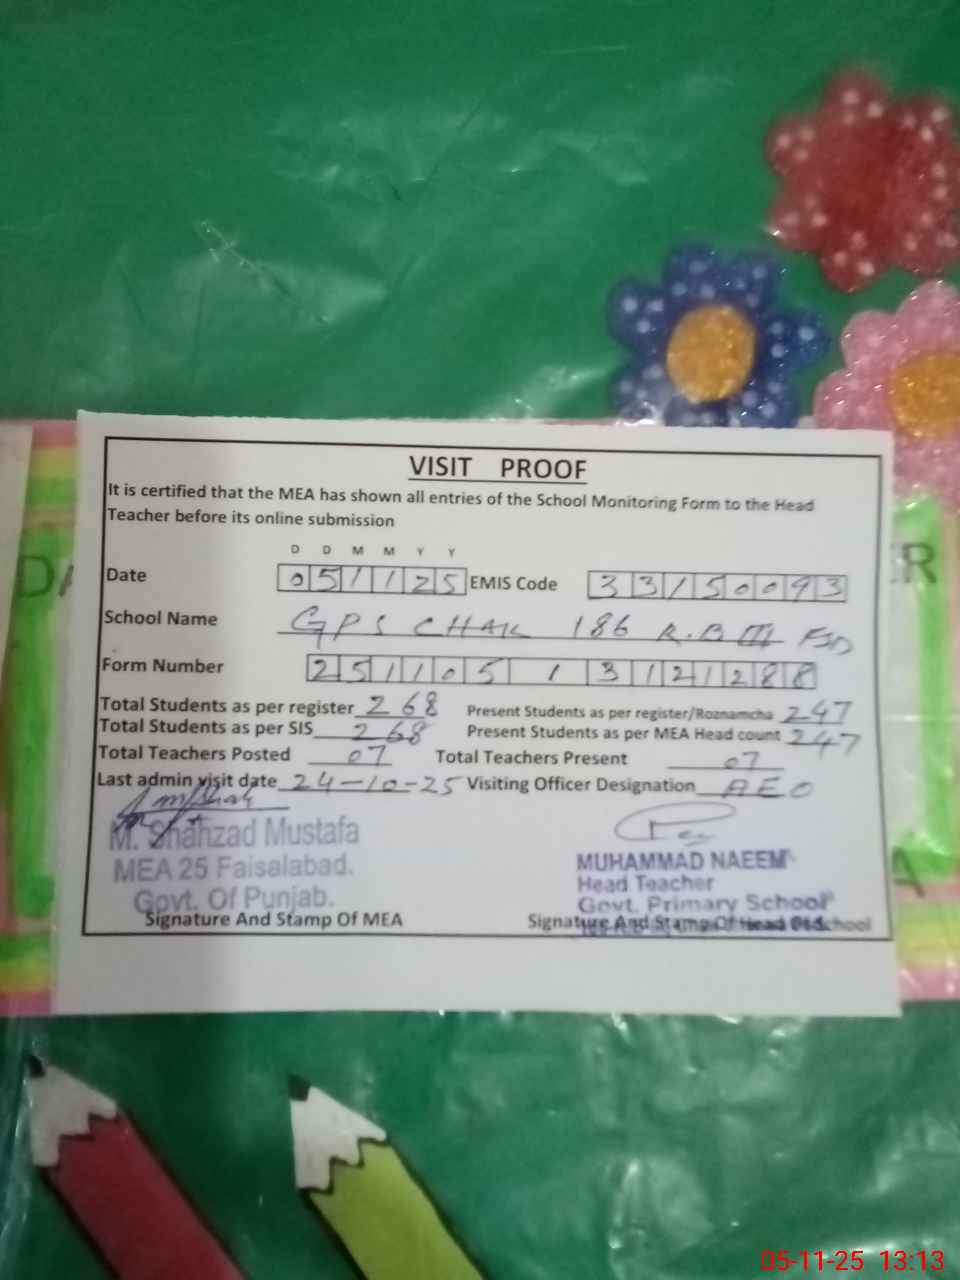 VISIT PROOF
It is certified that the MEA has shown all entries of the School Monitoring Form to the Head
Teacher before its online submission
D D M M Y Y
Date 051125 EMIS Code 33150093
School Name GPS CHAK 186 R.B III FSD
Form Number 251105 1 3121288
Total Students as per register 268 Present Students as per register/Roznamcha 247
Total Students as per SIS 268 Present Students as per MEA Head count 247
Total Teachers Posted 07 Total Teachers Present 07
Last admin visit date 24-10-25 Visiting Officer Designation AEO
M. Shahzad Mustafa
MEA 25 Faisalabad.
Govt. Of Punjab.
MUHAMMAD NAEEM
Head Teacher
Govt. Primary School
Signature And Stamp Of MEA Signature And Stamp Of Head Of School
05-11-25 13:13